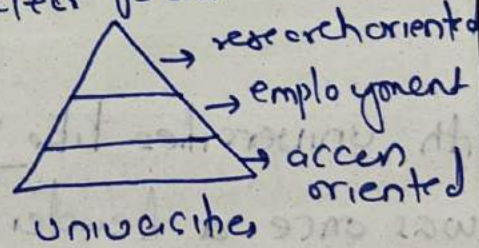 → researchoriented
→ employment
→ accen
oriented
univercities